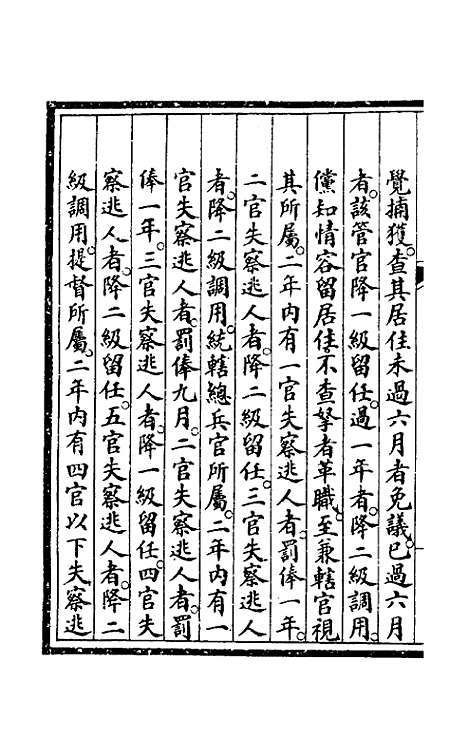 覺捕獲。查其居住未過六月者免議。已過六月
者。該管官降一級留任。過一年者。降二級調用。
儻知情容留居住。不查拏者革職。至兼轄官視
其所屬。二年內有一官失察逃人者。罰俸一年。
二官失察逃人者。降二級留任。三官失察逃人
者。降二級調用。統轄總兵官所屬。二年內有一
官失察逃人者。罰俸九月。二官失察逃人者。罰
俸一年。三官失察逃人者。降一級留任。四官失
察逃人者。降二級留任。五官失察逃人者。降二
級調用。提督所屬。二年內有四官以下失察逃